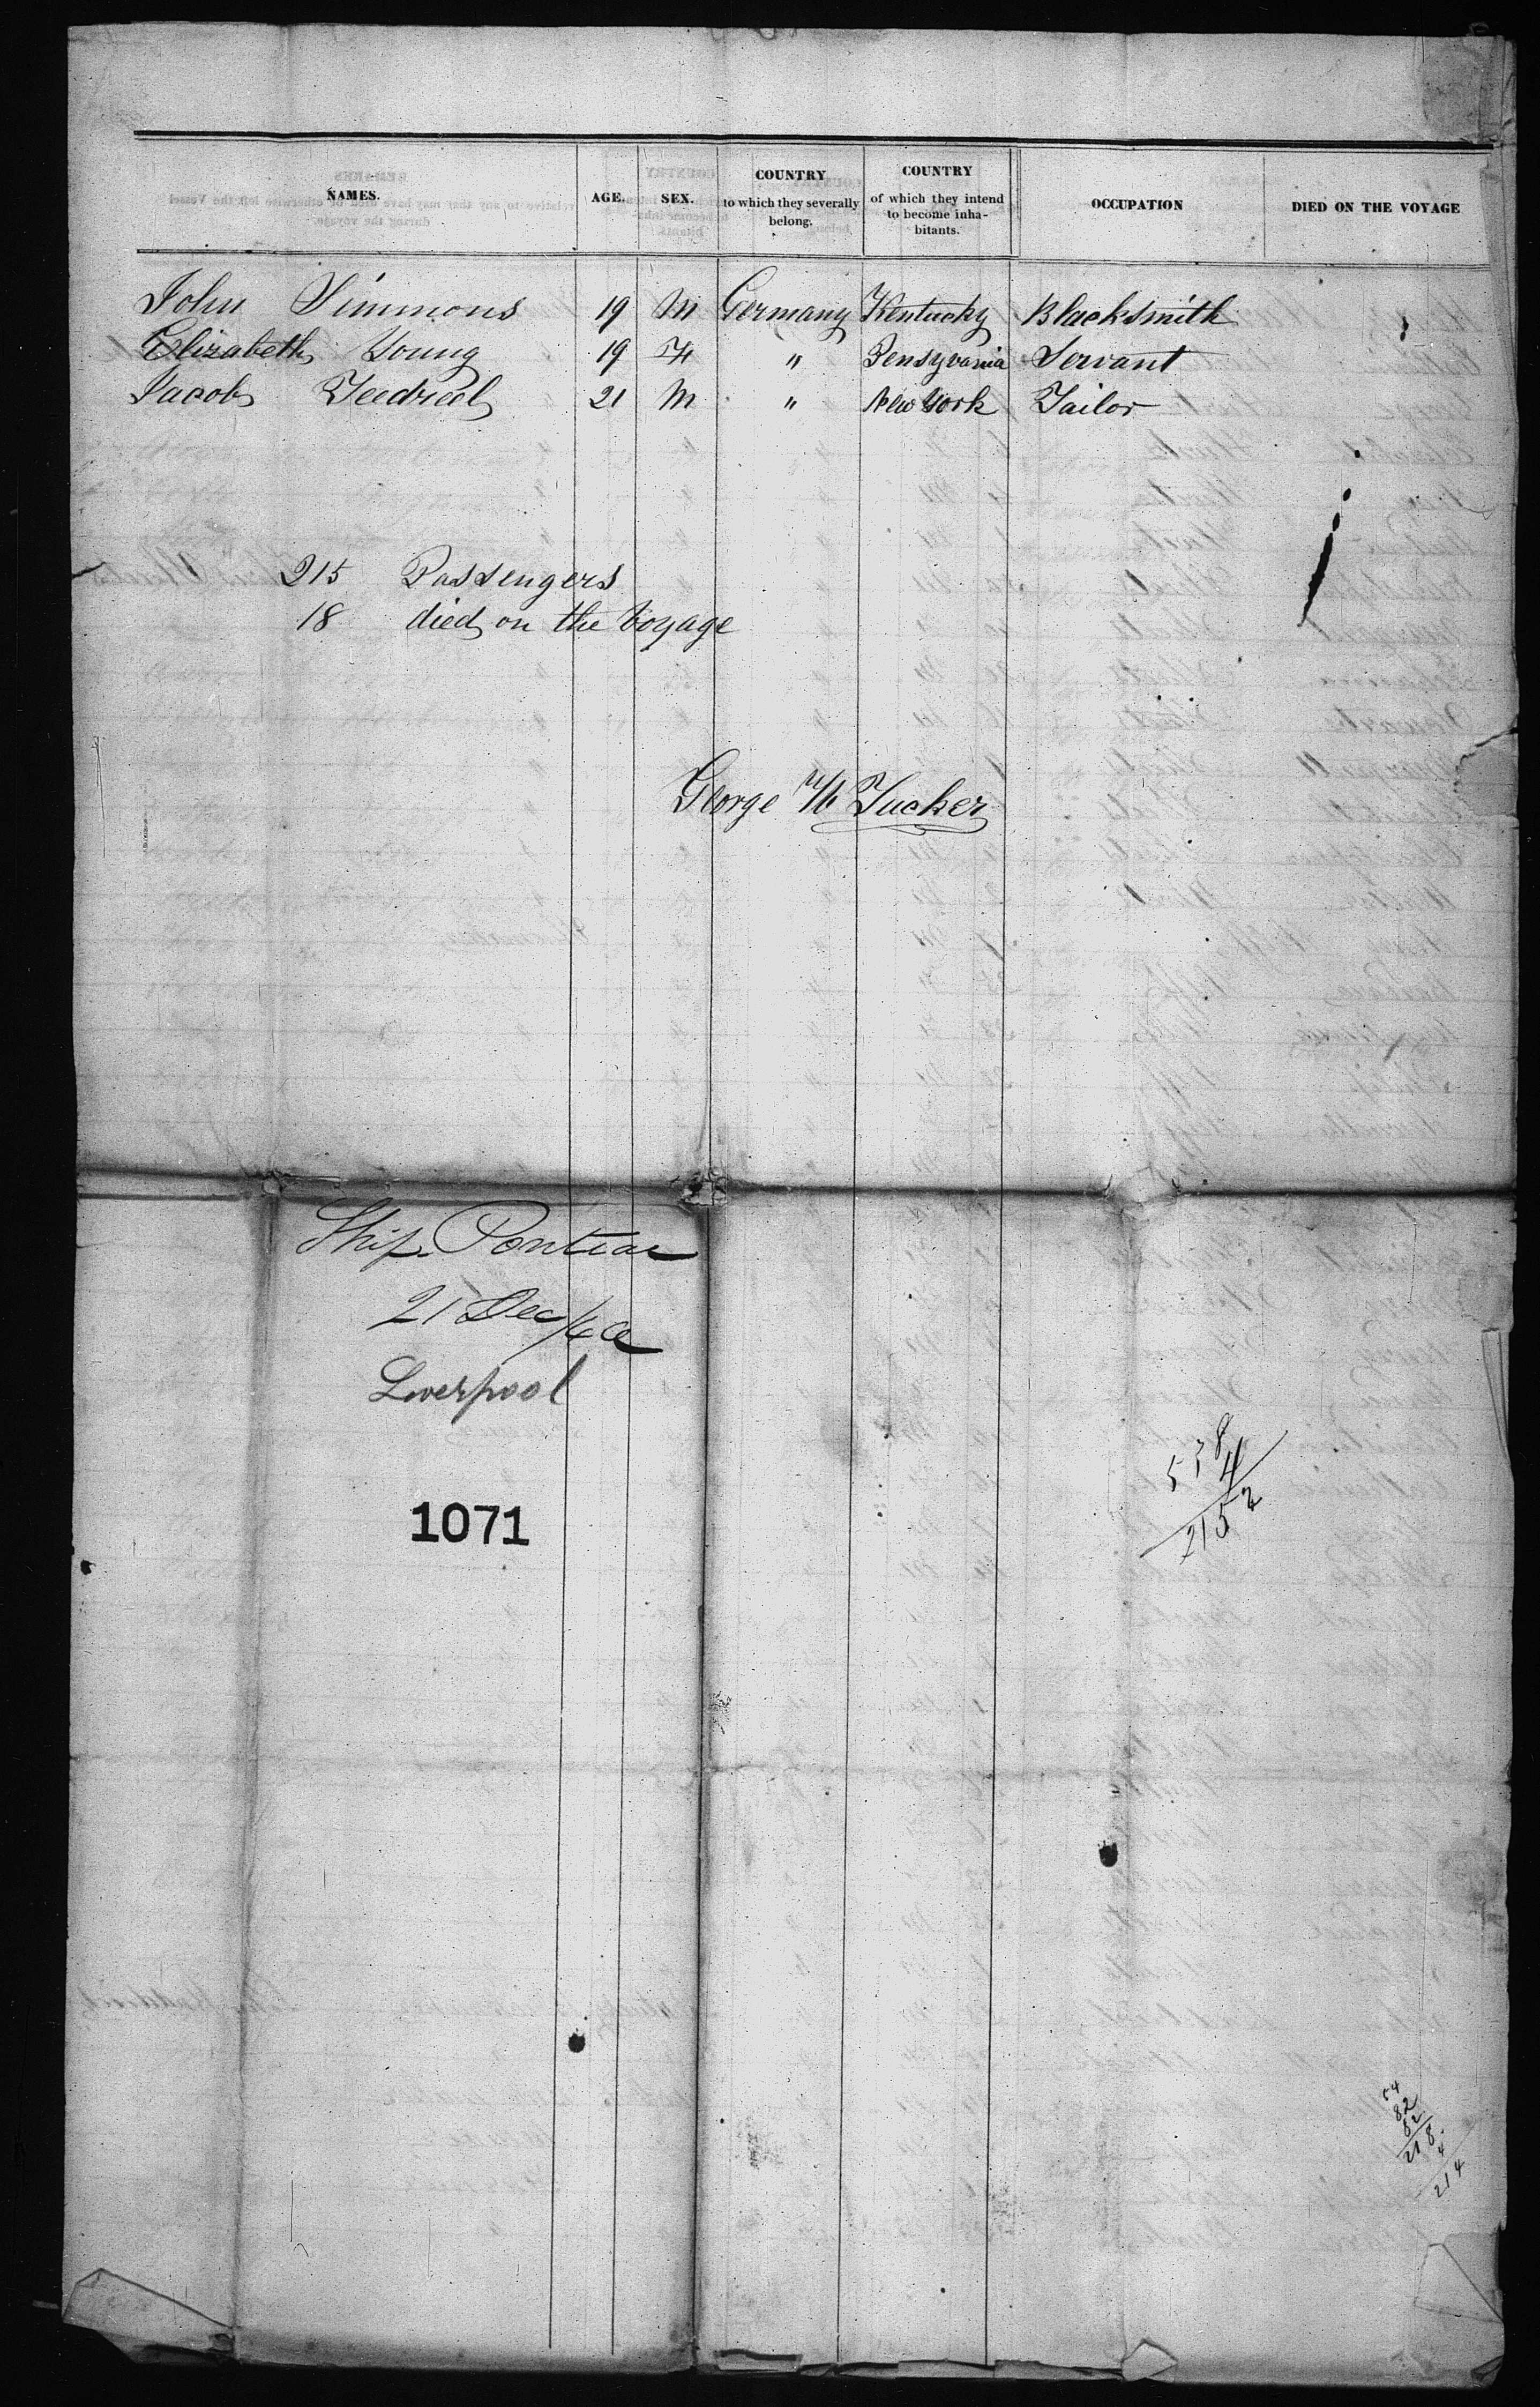 NAMES. AGE. SEX. COUNTRY to which they severally belong. COUNTRY of which they intend to become inhabitants. OCCUPATION DIED ON THE VOYAGE
John Simmons 19 M Germany Kentucky Blacksmith
Elizabeth Young 19 F " Pensyvania Servant
Jacob 21 M " New York Tailor
215 Passengers
18 died on the Voyage
George W Tucker
Ship Pontiac
21 Dec/
Liverpool
1071
538
4
2152
54
82
82
218
4
214